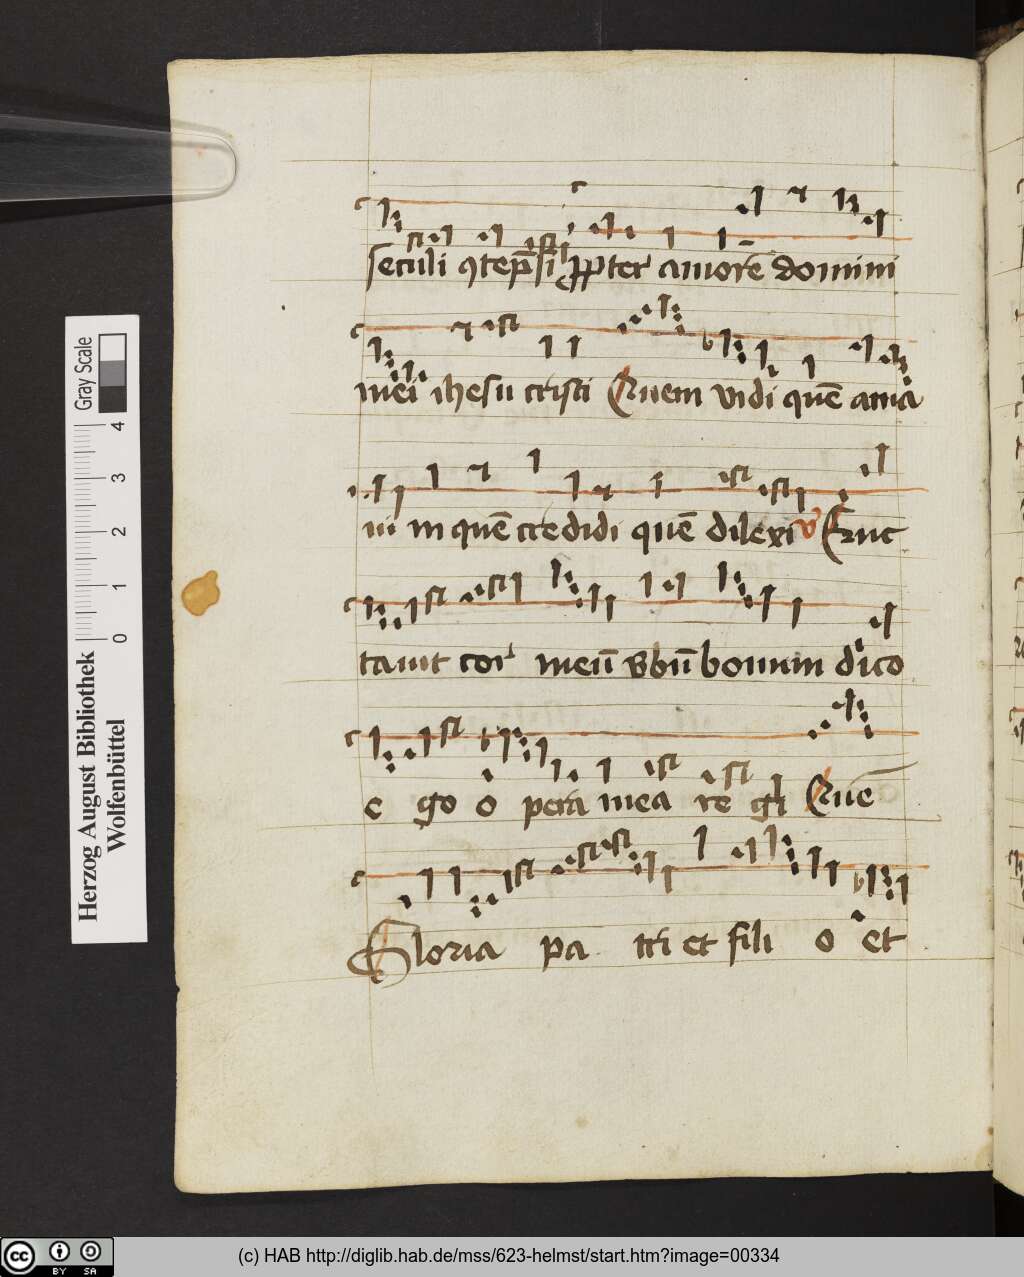 seculi ꝯtēpsi ꝓpter amorē domini
mei ihesu cristi Quem vidi quē ama
ui in quē credidi quē dilexi V Eruc
tauit cor meū v̄bū bonum dico
e go o pera mea re gi Quē
Gloria pa tri et fili o et
Gray Scale
4 3 2 1 0
Herzog August Bibliothek
Wolfenbüttel
cc BY SA
(c) HAB http://diglib.hab.de/mss/623-helmst/start.htm?image=00334